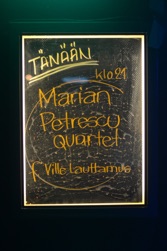 TÄNÄÄN
klo.21
Marian
Petrescu
quartet
Ville Lauttamus